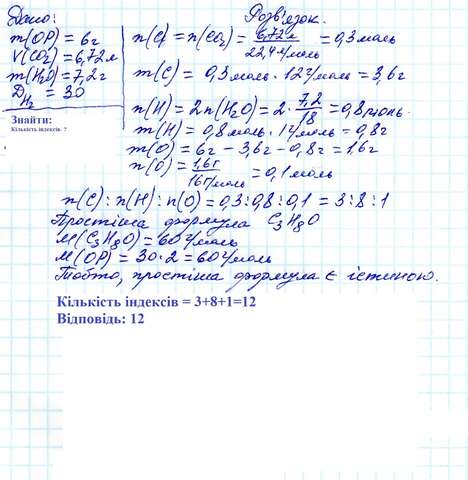 Дано:
m(ОР) = 6г
V(CO₂) = 6,72л
m(H₂O) = 7,2г
D_H₂ = 30
Знайти:
Кількість індексів ?
Розв'язок.
n(C) = n(CO₂) = 6,72л / 22,4л/моль = 0,3 моль
m(C) = 0,3 моль · 12г/моль = 3,6г
n(H) = 2n(H₂O) = 2 · 7,2 / 18 = 0,8 моль.
m(H) = 0,8 моль · 1г/моль = 0,8г
m(O) = 6г − 3,6г − 0,8г = 1,6г
n(O) = 1,6г / 16г/моль = 0,1 моль
n(C) : n(H) : n(O) = 0,3 : 0,8 : 0,1 = 3 : 8 : 1
Простіша формула C₃H₈O
M(C₃H₈O) = 60г/моль
M(ОР) = 30·2 = 60г/моль
Тобто, простіша формула є істиною.
Кількість індексів = 3+8+1=12
Відповідь: 12